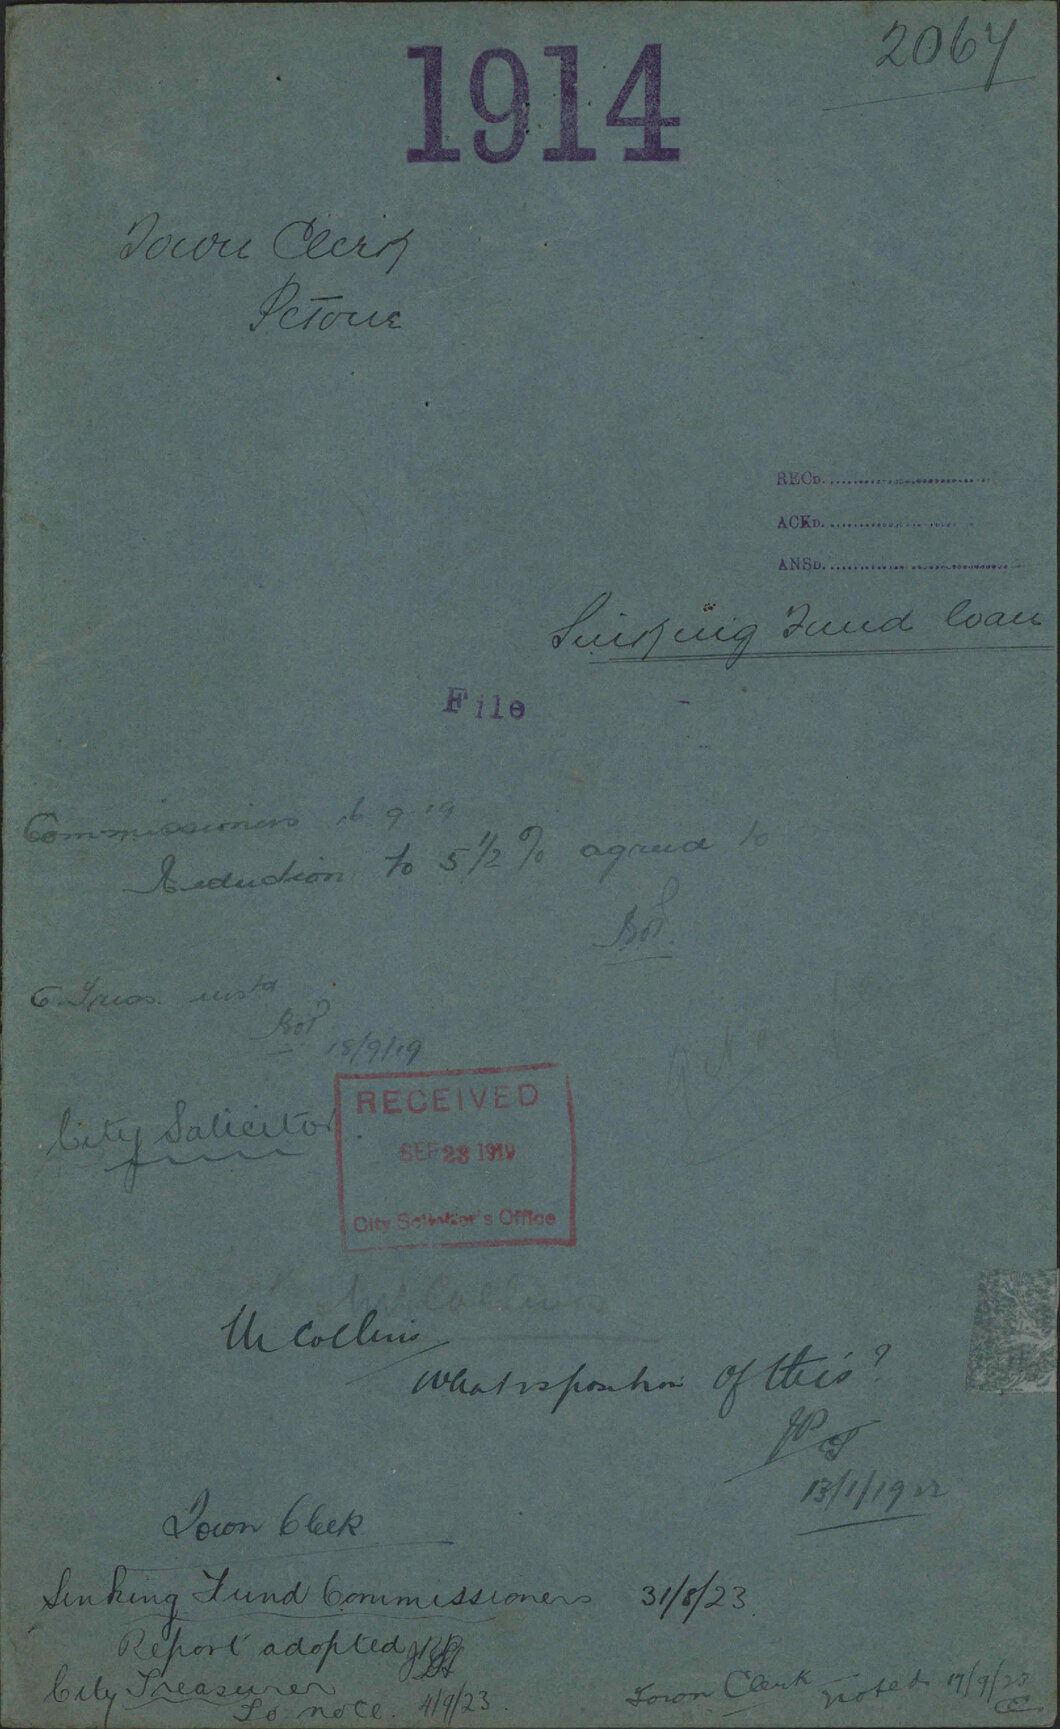 2067
1914
Town Clerk
Petone
RECD.
ACKD.
ANSD.
Sinking Fund loan
File
Commissioners 16 9 19
Reduction to 5 1/2 % agreed to
18/9/19
City Solicitor
RECEIVED
SEP 23 1919
City Solicitor's Office
Mr Collins
Mr Collins
What is position of this?
13/1/1922
Town Clerk
Sinking Fund Commissioners 31/8/23
Report adopted
City Treasurer
To note. 4/9/23
Town Clerk noted 17/9/23